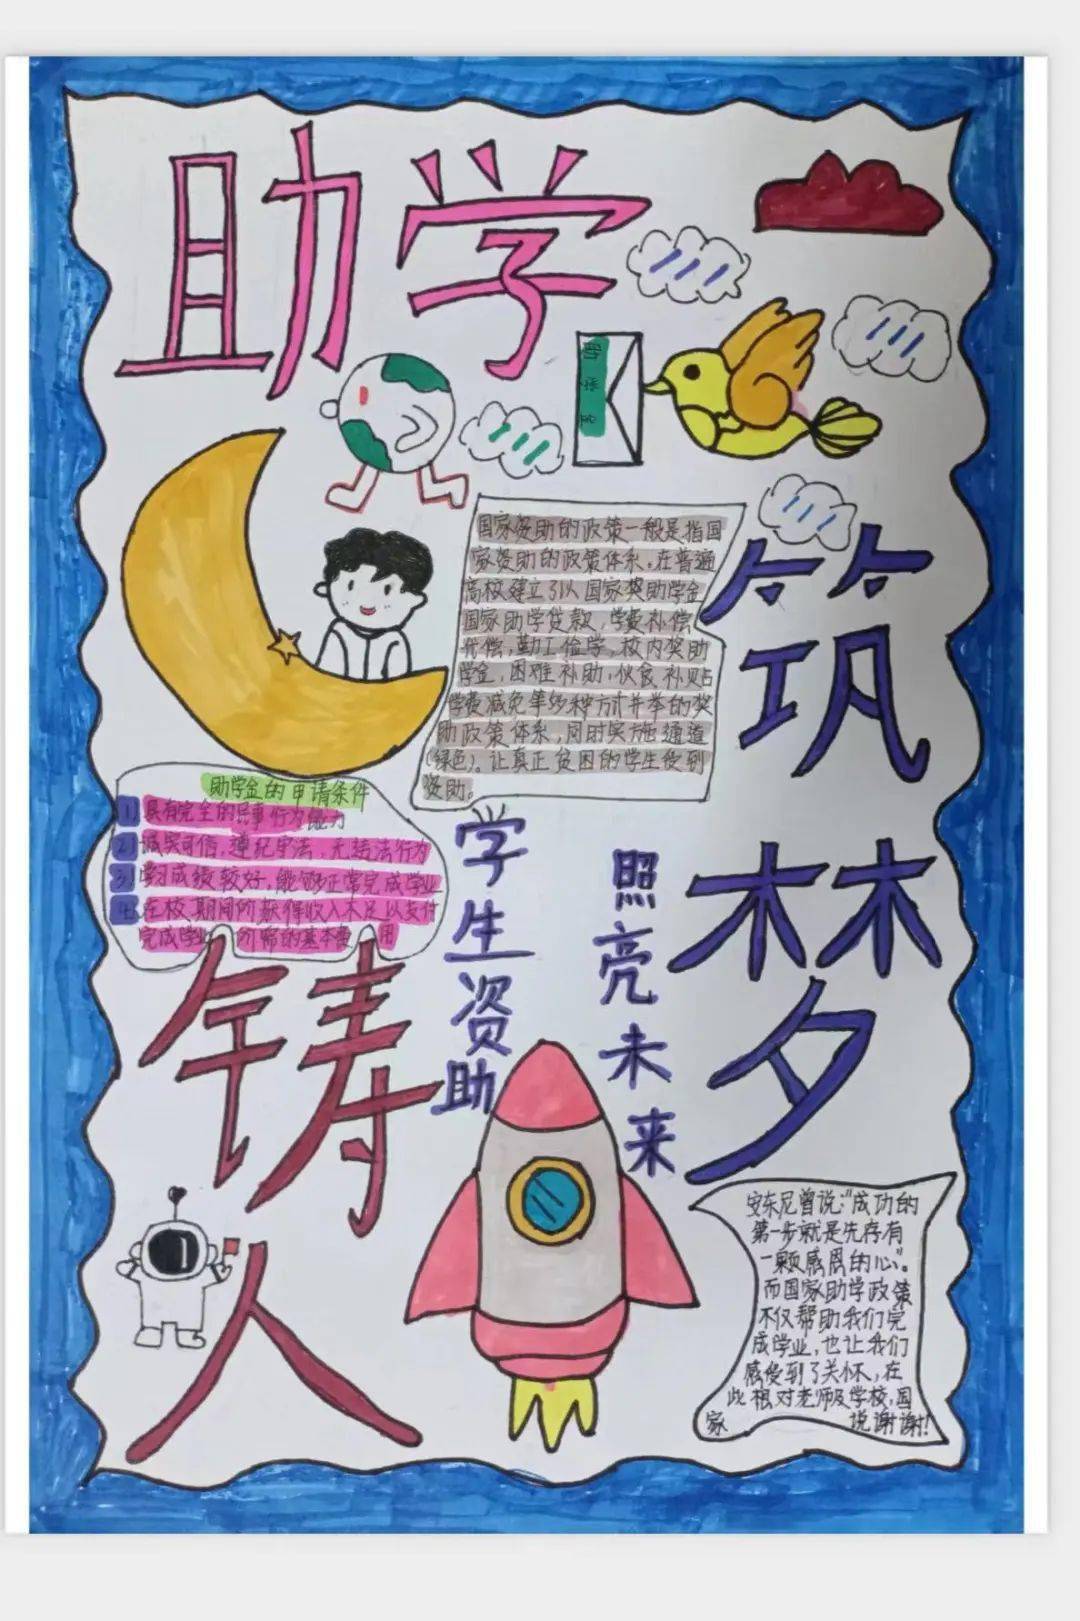 助学
筑梦
铸人
助学金
国家资助的政策一般是指国
家资助的政策体系。在普通
高校建立了以国家奖助学金
国家助学贷款,学费补偿
代偿,勤工俭学,校内奖助
学金,困难补助,伙食补贴
学费减免等多种方式并举的奖
助政策体系,同时实施通道
(绿色)。让真正贫困的学生受到
资助。
助学金的申请条件
1)具有完全的民事行为能力
2)诚实可信,遵纪守法,无违法行为
3)学习成绩较好,能够正常完成学业
4.在校期间所获得收入不足以支付
完成学业 所需的基本费用
学生资助
照亮未来
安东尼曾说:“成功的
第一步就是先存有
一颗感恩的心”。
而国家助学政策
不仅帮助我们完
成学业,也让我们
感受到了关怀,在
此想对老师及学校,国
家 说谢谢!